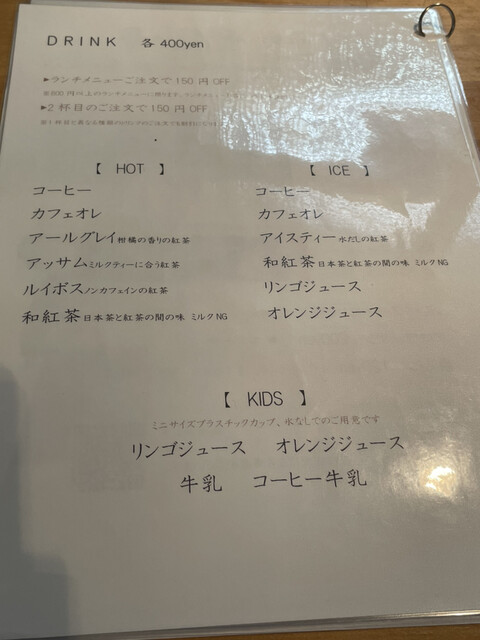 DRINK 各 400yen
▶ランチメニューご注文で 150 円 OFF
▶2 杯目のご注文で 150 円 OFF
【 HOT 】
コーヒー
カフェオレ
アールグレイ 柑橘の香りの紅茶
アッサム ミルクティーに合う紅茶
ルイボス ノンカフェインの紅茶
和紅茶 日本茶と紅茶の間の味 ミルク NG
【 ICE 】
コーヒー
カフェオレ
アイスティー 水だしの紅茶
和紅茶 日本茶と紅茶の間の味 ミルク NG
リンゴジュース
オレンジジュース
【 KIDS 】
ミニサイズプラスチックカップ、氷なしでのご用意です
リンゴジュース オレンジジュース
牛乳 コーヒー牛乳